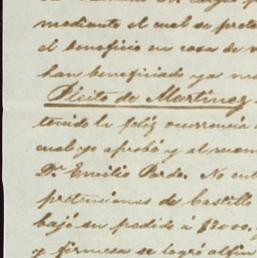 mediante el cual se prote
el beneficio en casa de
han beneficiado ya
Pleito de Martinez
tenido la feliz ocurrencia
cual yo aprobó y al
Dr. Emilio Pardo. No
pretensiones de castillo
bajó su pedido á $2000.
y firmeza se logró al fin